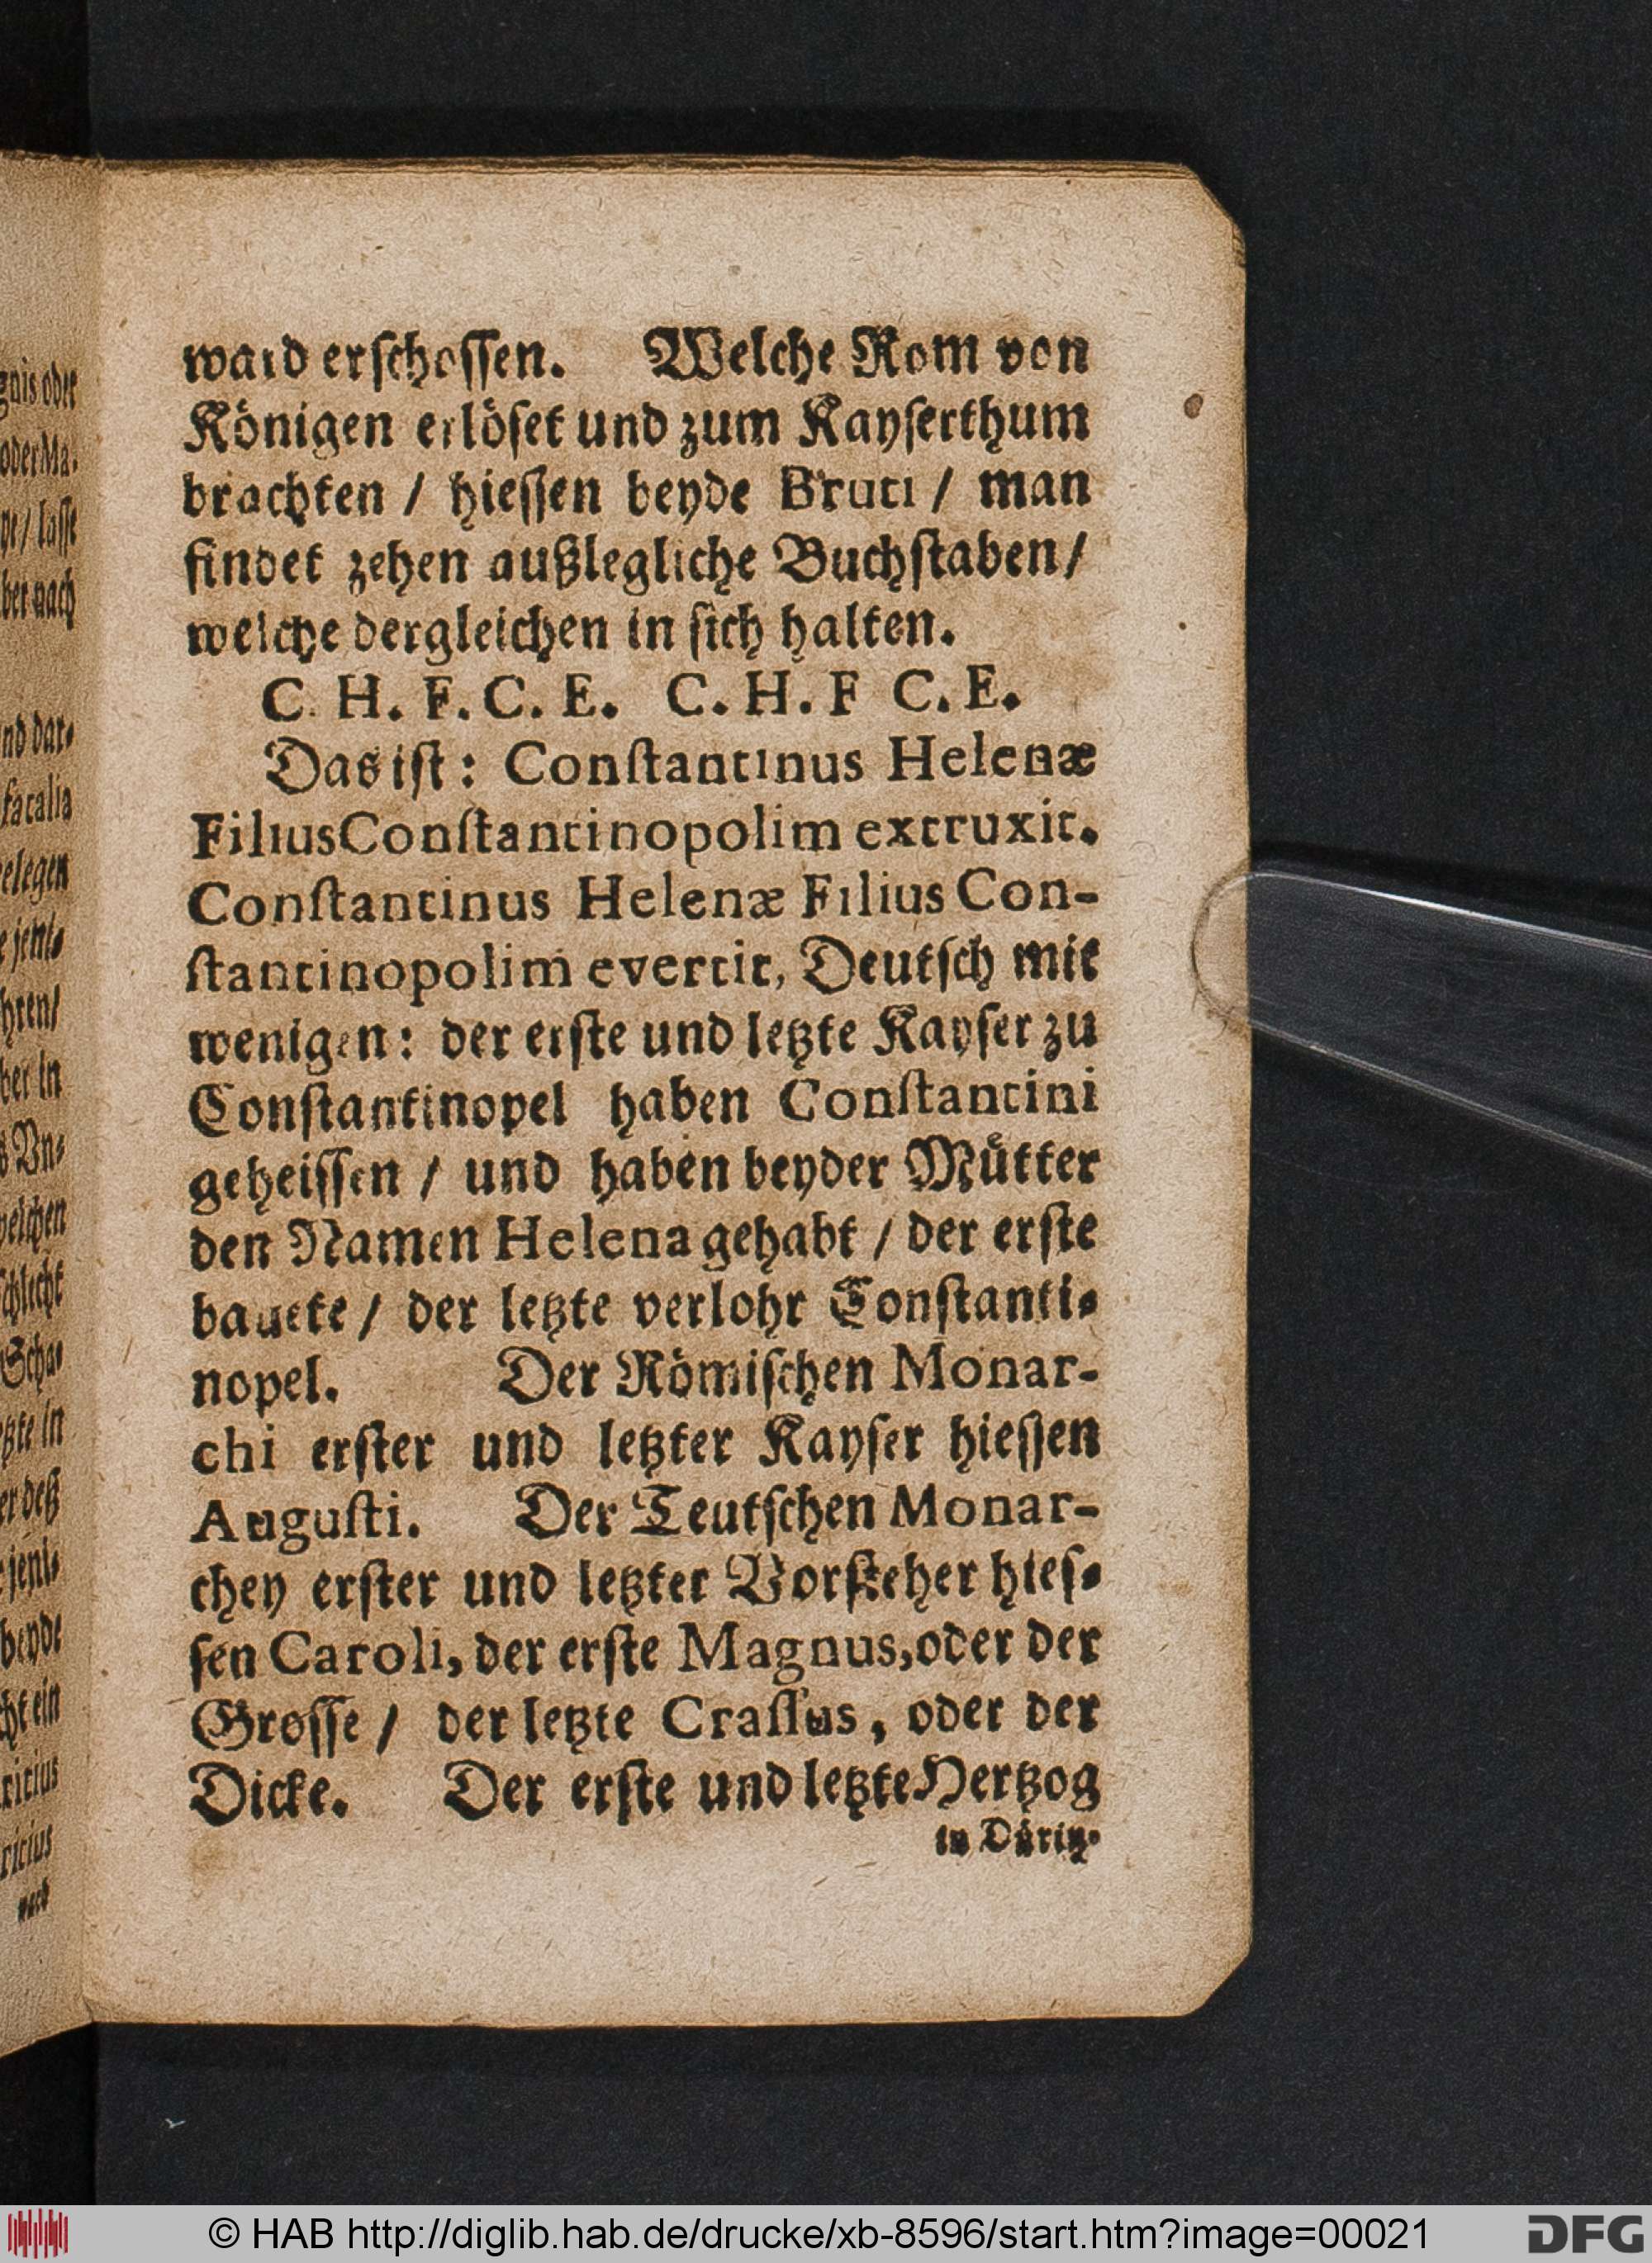 ward erschossen. Welche Rom von
Königen erlöset und zum Kayserthum
brachten / hiessen beyde Bruti / man
findet zehen außlegliche Buchstaben /
welche dergleichen in sich halten.
C. H. F. C. E. C. H. F C. E.
Das ist: Constantinus Helenæ
Filius Constantinopolim extruxit.
Constantinus Helenæ Filius Con-
stantinopolim evertit, Deutsch mit
wenigen: der erste und letzte Kayser zu
Constantinopel haben Constantini
geheissen / und haben beyder Mütter
den Namen Helena gehabt / der erste
bauete / der letzte verlohr Constanti-
nopel. Der Römischen Monar-
chi erster und letzter Kayser hiessen
Augusti. Der Teutschen Monar-
chey erster und letzter Vorsteher hies-
sen Caroli, der erste Magnus, oder der
Grosse / der letzte Crassus, oder der
Dicke. Der erste und letzte Hertzog
in Düring-
gnis oder
oder Ma-
lasse
ber nach
und dar-
fatalia
gelegen
jeni-
hren/
ber in
Vn-
welchen
schlecht
Scha-
letzte in
er deß
jeni-
beyde
cht ein
ricius
ricius
nach
© HAB http://diglib.hab.de/drucke/xb-8596/start.htm?image=00021
DFG